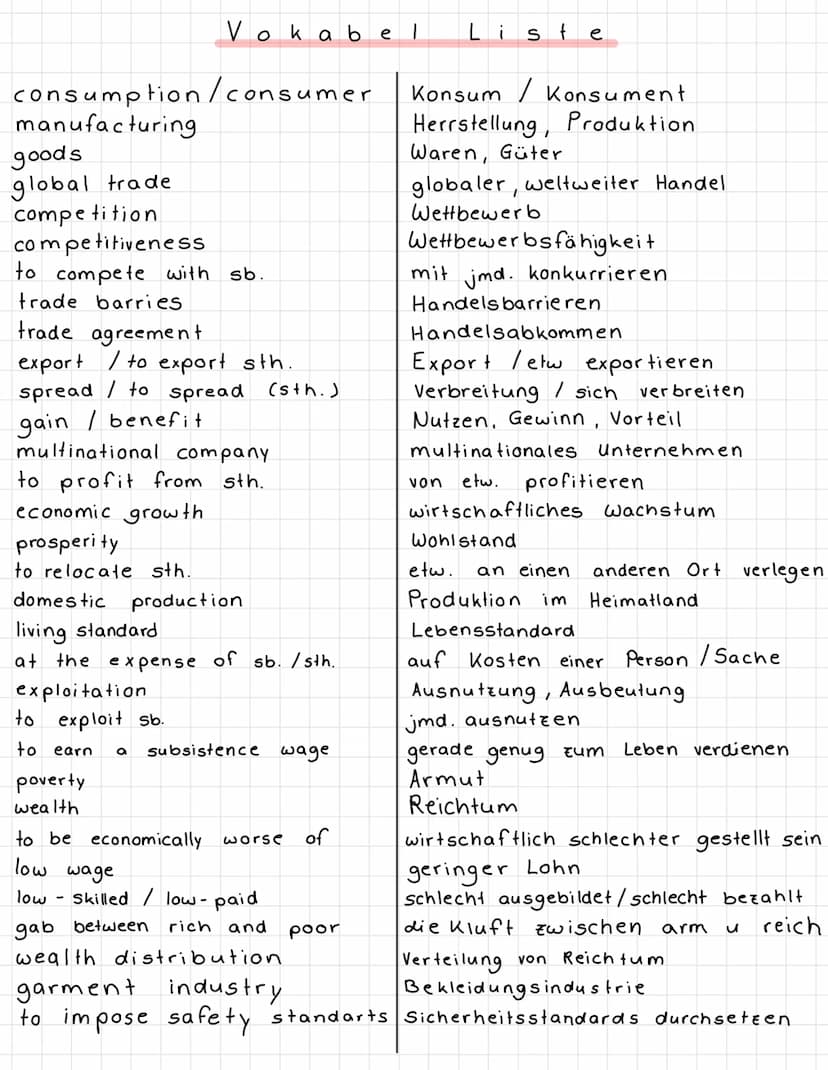 Vokabel Liste
consumption/consumer | Konsum / Konsument
manufacturing | Herrstellung, Produktion
goods | Waren, Güter
global trade | globaler, weltweiter Handel
competition | Wettbewerb
competitiveness | Wettbewerbsfähigkeit
to compete with sb. | mit jmd. konkurrieren
trade barries | Handelsbarrieren
trade agreement | Handelsabkommen
export / to export sth. | Export / etw exportieren
spread / to spread (sth.) | Verbreitung / sich verbreiten
gain / benefit | Nutzen, Gewinn, Vorteil
multinational company | multinationales Unternehmen
to profit from sth. | von etw. profitieren
economic growth | wirtschaftliches Wachstum
prosperity | Wohlstand
to relocate sth. | etw. an einen anderen Ort verlegen
domestic production | Produktion im Heimatland
living standard | Lebensstandard
at the expense of sb. /sth. | auf Kosten einer Person / Sache
exploitation | Ausnutzung, Ausbeutung
to exploit sb. | jmd. ausnutzen
to earn a subsistence wage | gerade genug zum Leben verdienen
poverty | Armut
wealth | Reichtum
to be economically worse of | wirtschaftlich schlechter gestellt sein
low wage | geringer Lohn
low - skilled / low - paid | schlecht ausgebildet / schlecht bezahlt
gab between rich and poor | die Kluft zwischen arm u reich
wealth distribution | Verteilung von Reichtum
garment industry | Bekleidungsindustrie
to impose safety standarts | Sicherheitsstandards durchsetzen